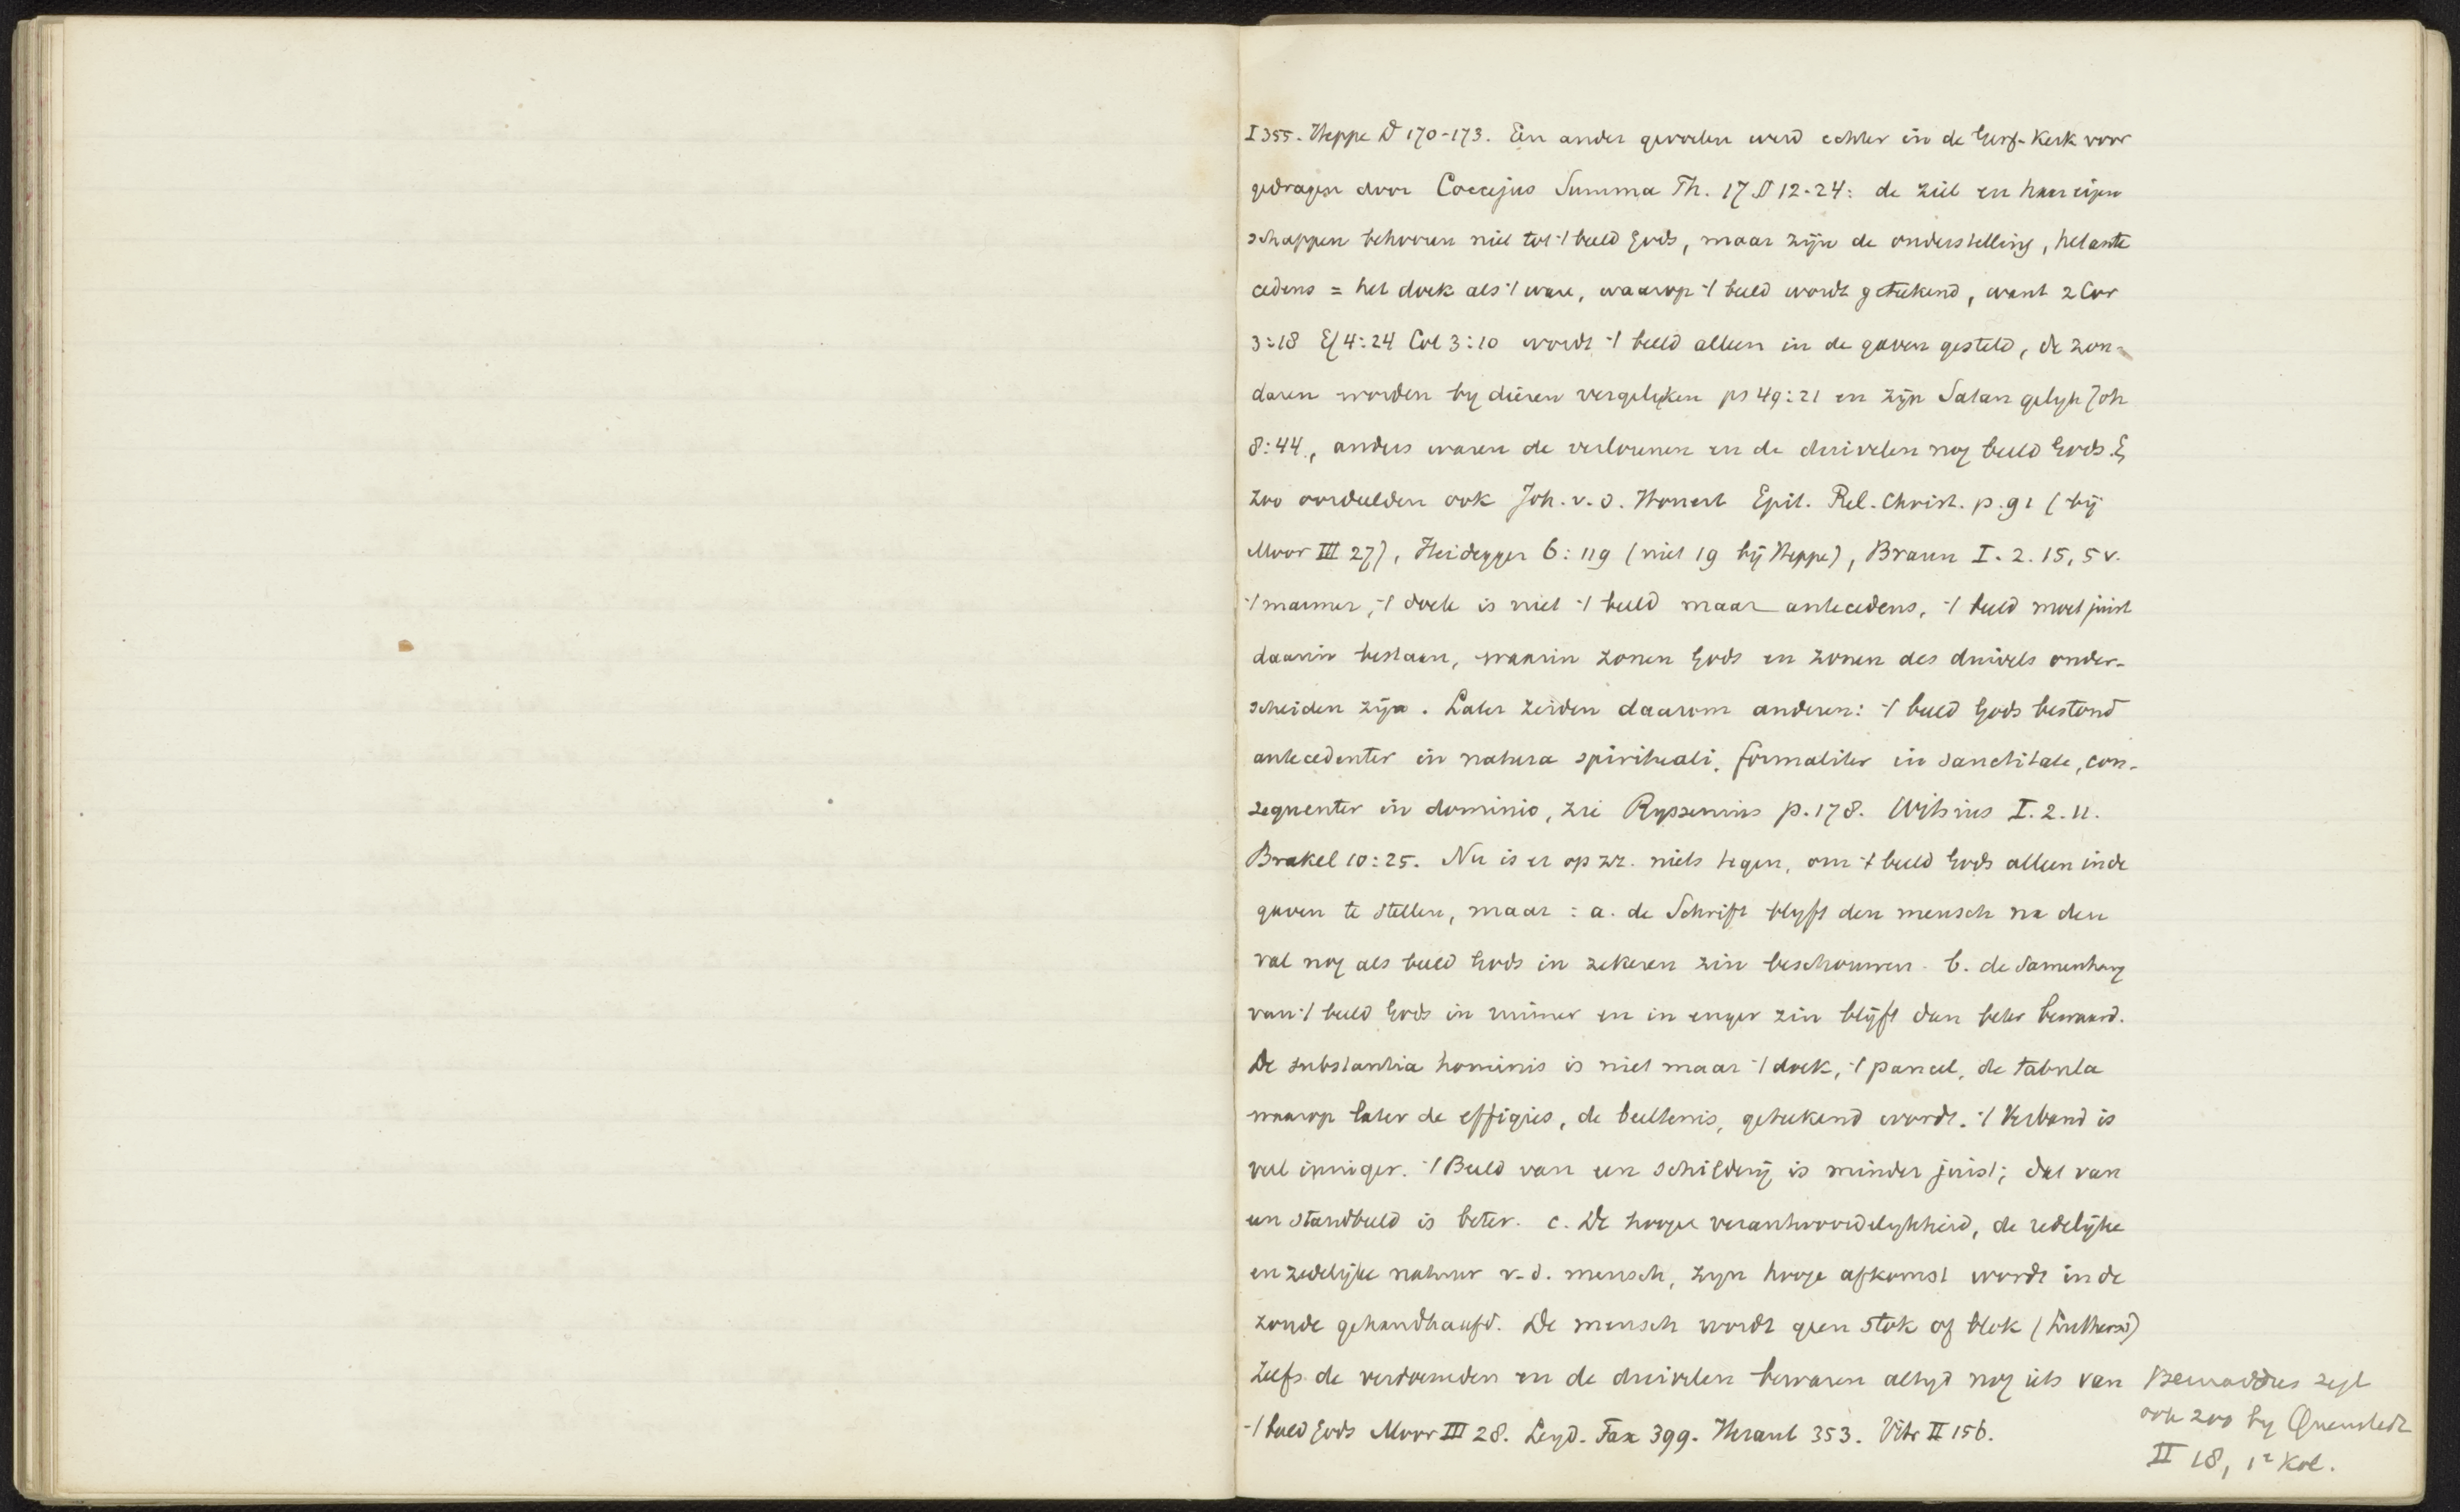 I 355. Heppe D 170-173. Een ander gevoelen werd echter in de Geref. Kerk voor
gedragen door Coccejus Summa Th. 17 § 12-24: de ziel en haar eigen
schappen behooren niet tot 't beeld Gods, maar zijn de onderstelling, het ante
cedens = het doek als 't ware, waarop 't beeld wordt geteekend, want 2 Cor
3:18 Ef 4:24 Col 3:10 wordt 't beeld alleen in de gaven gesteld, de zon-
daren worden by dieren vergeleken ps 49:21 en zijn Satan gelyk Joh
8:44., anders waren de verlorenen en de duivelen nog beeld Gods.
zoo oordeelden ook Joh. v. d. Honert Epit. Rel. Christ. p. 91 (bij
Moor III 27), Heidegger 6:119 (niet 19 bij Heppe), Braun I. 2. 15, 5 v.
't marmer, 't doek is niet 't beeld maar antecedens, 't beeld moet juist
daarin bestaan, waarin zonen Gods en zonen des duivels onder-
scheiden zijn. Later zeiden daarom anderen: 't beeld Gods bestond
antecedenter in natura spirituali, formaliter in sanctitate, con-
sequenter in dominio, zie Ryssenius p. 178. Witsius I. 2. 11.
Brakel 10:25. Nu is er op zz. niets tegen, om 't beeld Gods alleen in de
gaven te stellen, maar: a. de Schrift blyft den mensch na den
val nog als beeld Gods in zekeren zin beschouwen. b. de samenhang
van 't beeld Gods in ruimer en in enger zin blijft dan beter bewaard.
De substantia hominis is niet maar 't doek, 't paneel, de tabula
waarop later de effigies, de beeltenis, geteekend wordt. 't Verband is
veel inniger. 't Beeld van een schilderij is minder juist; dat van
een standbeeld is beter. c. De hooge verantwoordelykheid, de redelijke
en zedelijke natuur v. d. mensch, zyn hooge afkomst wordt in de
zonde gehandhaafd. De mensch wordt geen stok of blok (Luthersch)
Zelfs de verdoemden en de duivelen bewaren altyd nog iets van
't beeld Gods Moor III 28. Leyd. Fax 399. Heraut 353. Vitr II 156.
Bernardus zegt
ook zoo by Quenstedt
II 18, 1e kol.